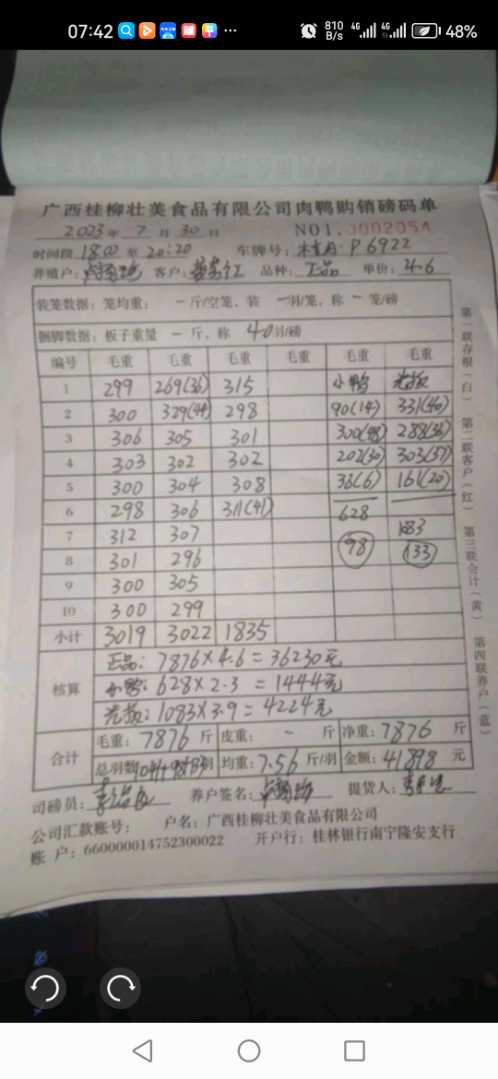 07:42
810 B/s
4G
4G
48%
广西桂柳壮美食品有限公司肉鸭购销磅码单
2023年 7月 30日 NO1. 0002054
时间段 18:00 至 20:20 车牌号: P.6922
养殖户: 客户: 品种: 正品 单价: 4.6
装笼数据: 笼均重: 一斤/空笼, 装 一羽/笼, 称 一笼/磅
捆脚数据: 板子重量 一斤, 称 40羽/磅
编号 毛重 毛重 毛重 毛重 毛重 毛重
1 299 269(36) 315 小鸭 光板
2 300 329(44) 298 90(14) 331(40)
3 306 305 301 300(48) 288(36)
4 303 302 302 202(30) 303(37)
5 300 304 308 36(6) 161(20)
6 298 306 311(41) 628
7 312 307 1083
8 301 296 98 133
9 300 305
10 300 299
小计 3019 3022 1835
核算
正品: 7876×4.6=36230元
小鸭: 628×2.3=1444元
光板: 1083×3.9=4224元
合计
毛重: 7876 斤 皮重: - 斤 净重: 7876 斤
总羽数 羽 均重: 7.56 斤/羽 金额: 41898 元
司磅员: 养户签名: 提货人:
公司汇款账号: 户名: 广西桂柳壮美食品有限公司
账 户: 660000014752300022 开户行: 桂林银行南宁隆安支行
第一联存根(白) 第二联客户(红) 第三联会计(黄) 第四联养户(蓝)